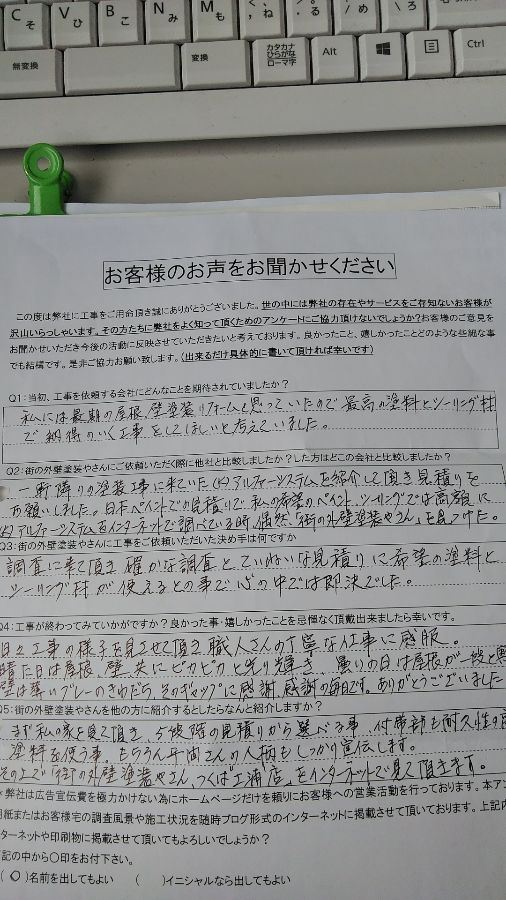 C そ V ひ B こ N み M も く , ね > 。 る ? / め ろ
無変換 変換 カタカナ ひらがな ローマ字 Alt Ctrl
お客様のお声をお聞かせください
この度は弊社に工事をご用命頂き誠にありがとうございました。世の中には弊社の存在やサービスをご存知ないお客様が
沢山いらっしゃいます。その方たちに弊社をよく知って頂くためのアンケートにご協力頂けないでしょうか?お客様のご意見を
お聞かせいただき今後の活動に反映させていただきたいと考えております。良かったこと、嬉しかったことどのような些細な事
でも結構です。是非ご協力お願い致します。(出来るだけ具体的に書いて頂ければ幸いです)
Q1:当初、工事を依頼する会社にどんなことを期待されていましたか?
私には最期の屋根、壁塗装リフォームと思っていたので最高の塗料とシーリング材
で納得のいく工事をしてほしいと考えていました。
Q2:街の外壁塗装やさんにご依頼いただく際に他社と比較しましたか?した方はどこの会社と比較しましたか?
一軒隣りの塗装工事に来ていた(K)アルファーシステムを紹介して頂き見積りを
お願いしました。日本ペイントでの見積りで私の希望のペイント、シーリングでは高額に
(K)アルファーシステムをインターネットで調べている時、偶然、「街の外壁塗装やさん」を見つけた。
Q3:街の外壁塗装やさんに工事をご依頼いただいた決め手は何ですか
調査に来て頂き確かな調査とていねいな見積りに希望の塗料と
シーリング材が使えるとの事で心の中では即決でした。
Q4:工事が終わってみていかがですか?良かった事・嬉しかったことを忌憚なく頂戴出来ましたら幸いです。
日々工事の様子を見させて頂き職人さんの丁寧な仕事に感服。
晴た日は屋根、壁共にピカピカと光り輝き、曇りの日は屋根が一段と黒
壁は薄いブルーのきわだち そのギャップに感謝、感謝の毎日です。ありがとうございました
Q5:街の外壁塗装やさんを他の方に紹介するとしたらなんと紹介しますか?
まず私の家を見て頂き、5段階の見積りから選べる事、付帯部も耐久性の高
塗料を使う事、もちろん 人柄もしっかり宣伝します。
その上で「街の外壁塗装やさん、つくば土浦店」をインターネットで見て頂きます。
※弊社は広告宣伝費を極力かけない為にホームページだけを頼りにお客様への営業活動を行っております。本アン
用紙またはお客様宅の調査風景や施工状況を随時ブログ形式のインターネットに掲載させて頂いております。上記内
ターネットや印刷物に掲載させて頂いてもよろしいでしょうか?
下記の中から〇印をお付下さい。
(〇)名前を出してもよい ( )イニシャルなら出してもよい